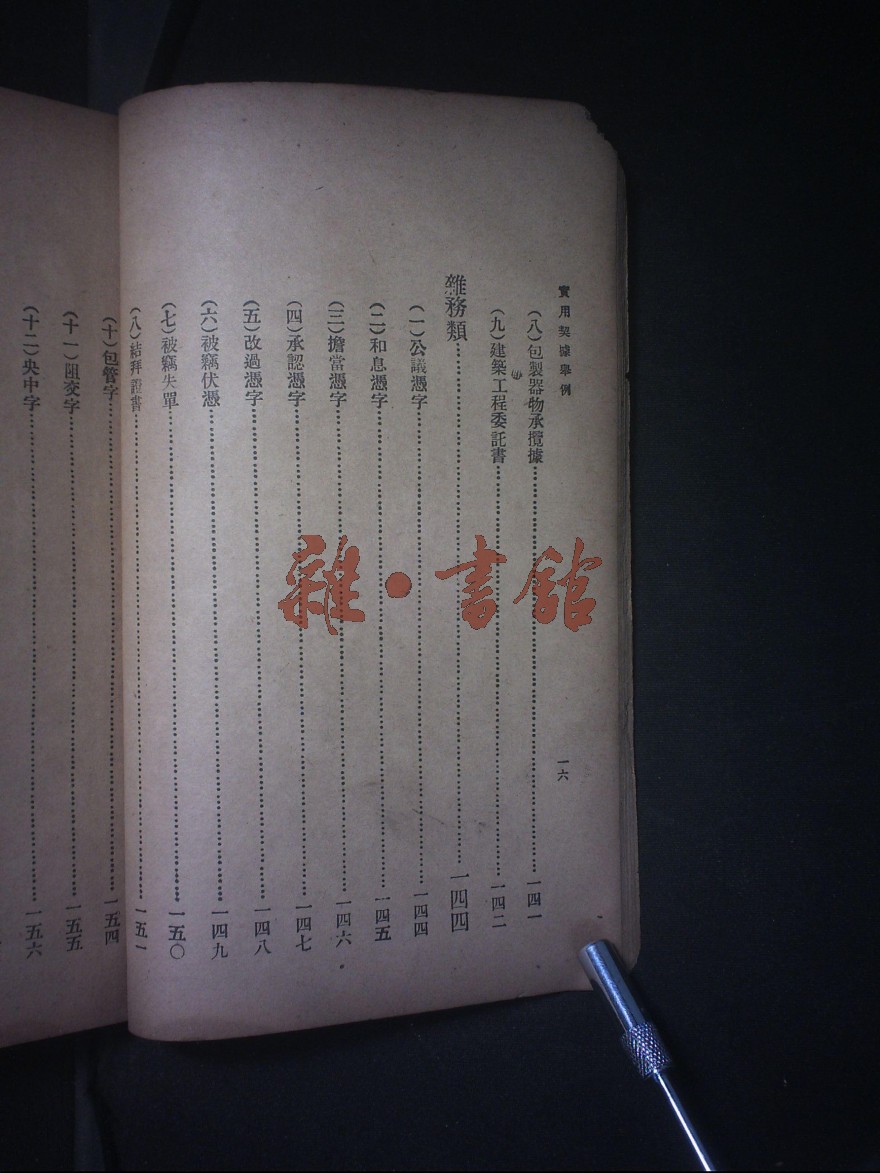 實用契據舉例
一六
(八)包製器物承攬據……一四一
(九)建築工程委託書……一四二
雜務類……一四四
(一)公議憑字……一四四
(二)和息憑字……一四五
(三)擔當憑字……一四六
(四)承認憑字……一四七
(五)改過憑字……一四八
(六)被竊伏憑……一四九
(七)被竊失單……一五〇
(八)結拜證書……一五一
(十)包管字……一五四
(十一)阻交字……一五五
(十二)央中字……一五六
雜·書館